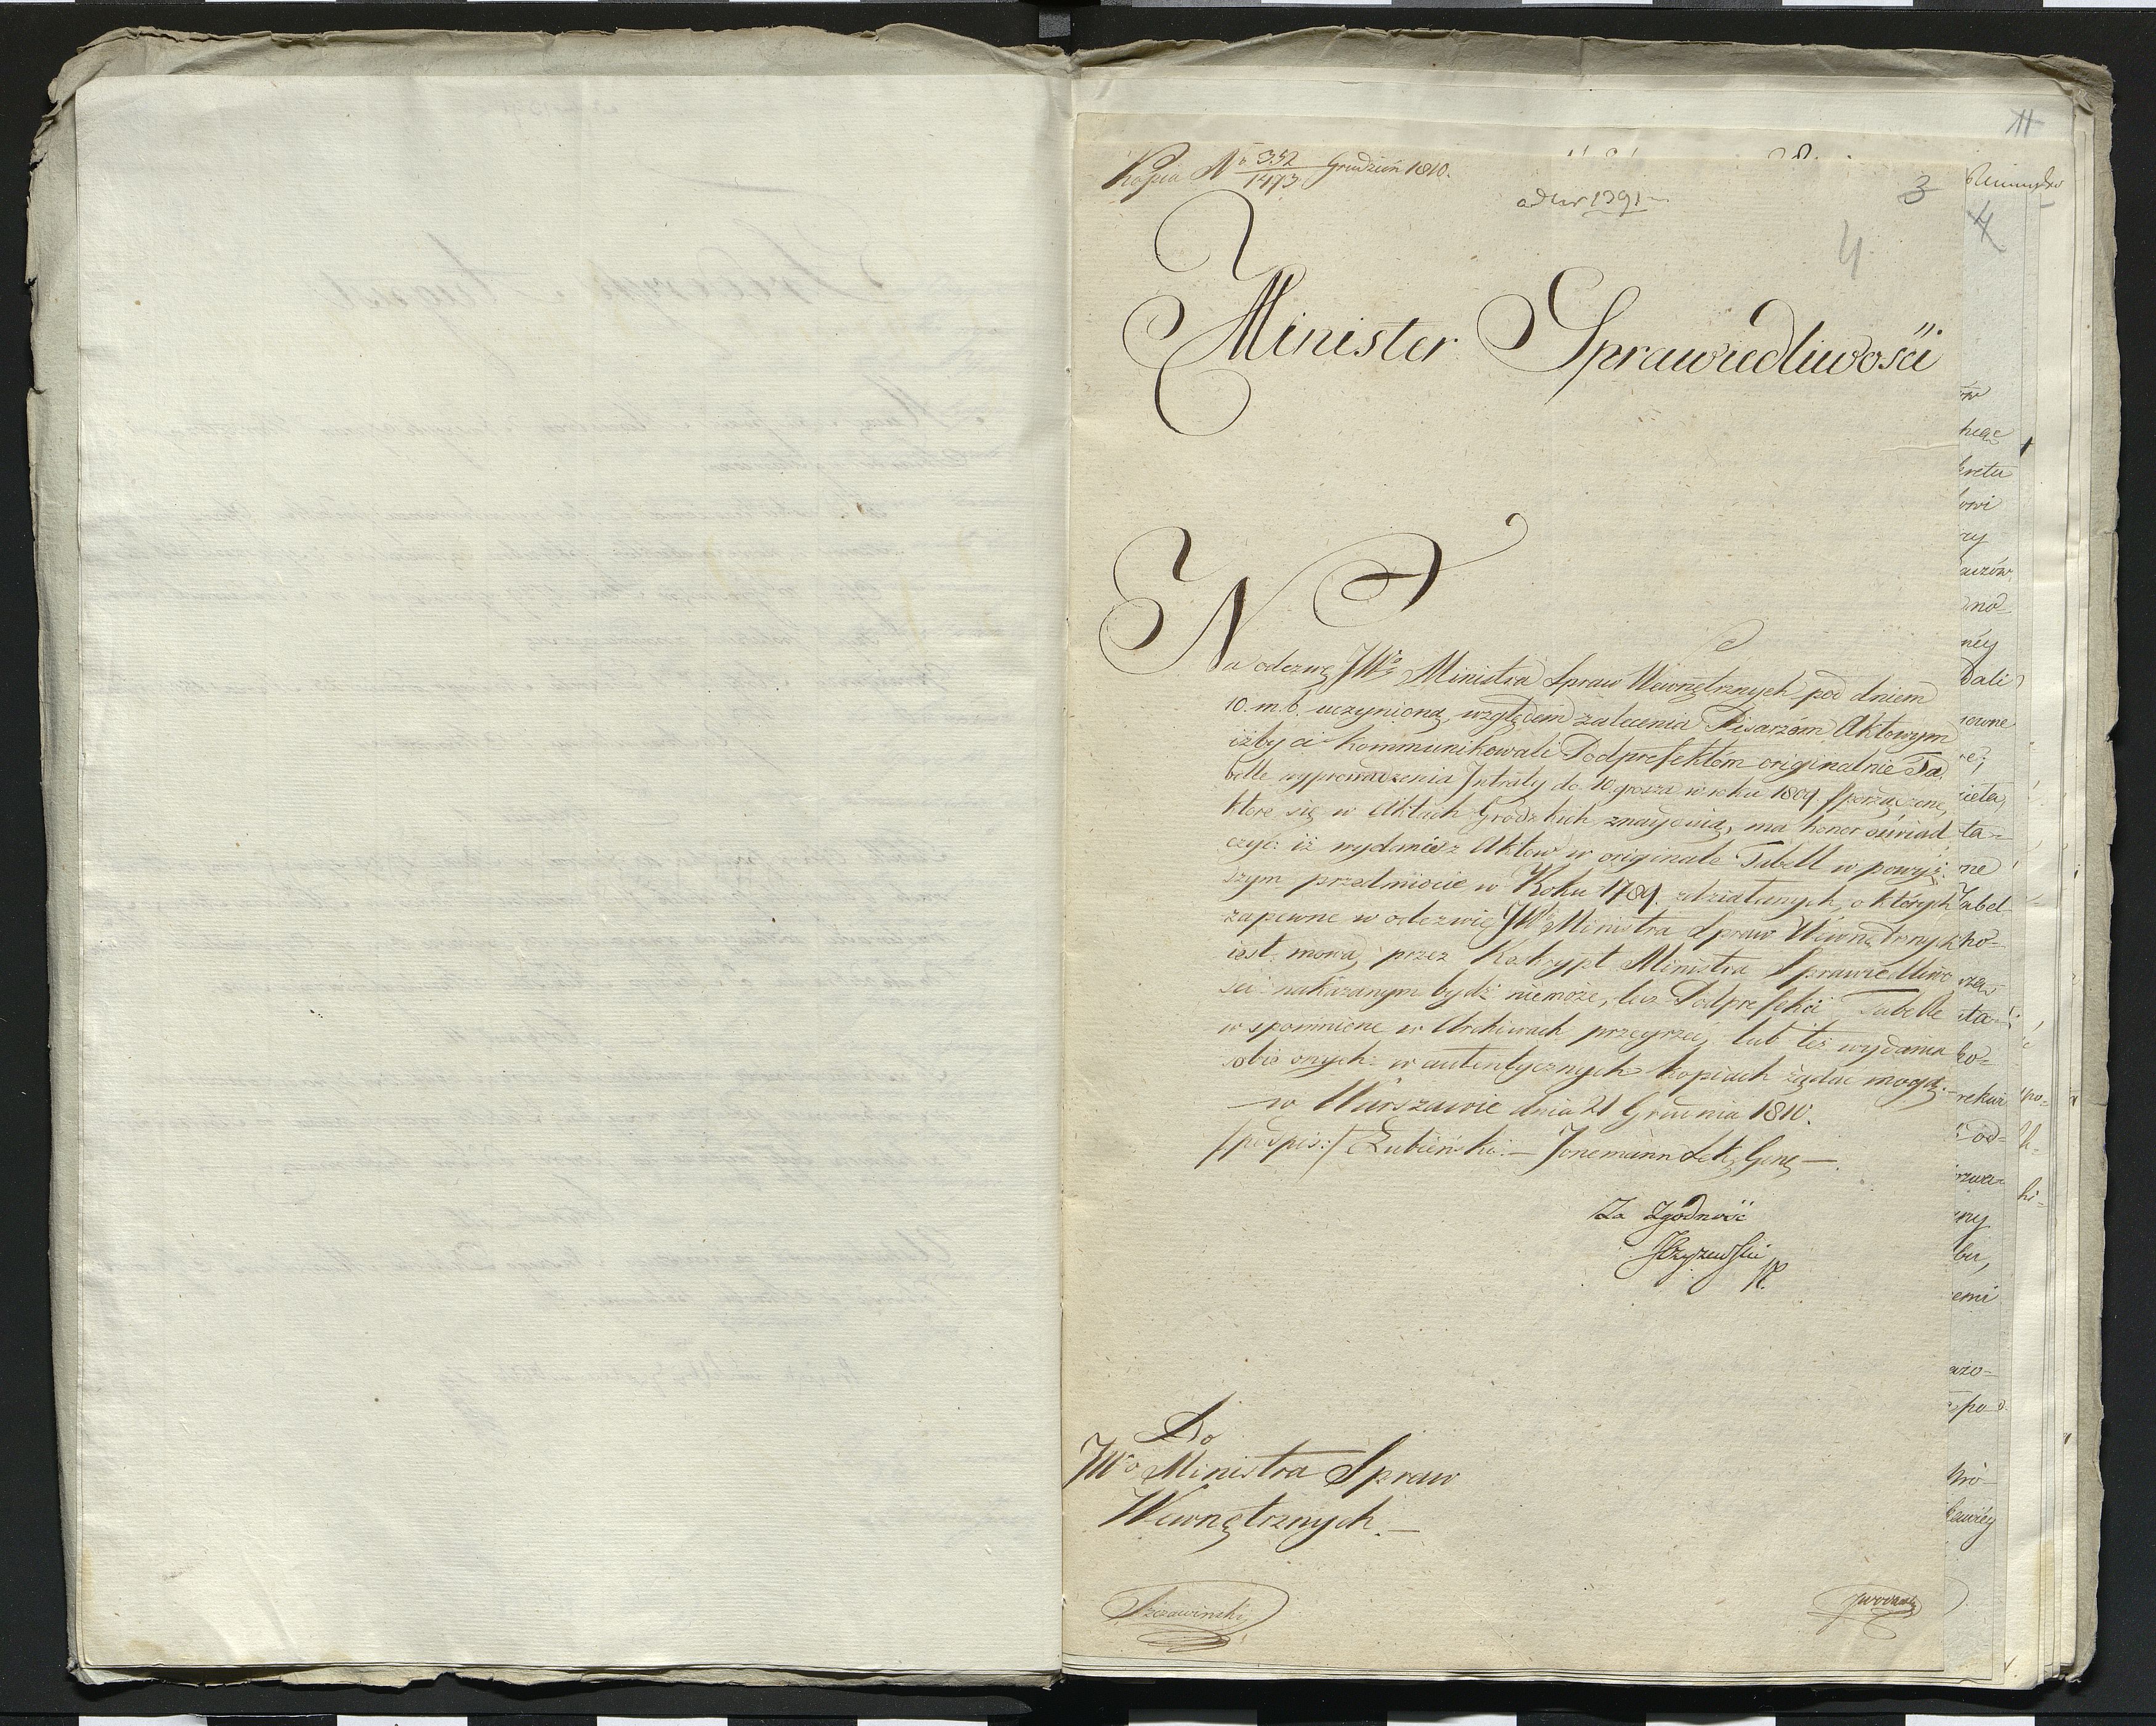 11
Kopia No 352/1473 Grudzień 1810.
ad nr 1391
3
4
4
Minister Sprawiedliwości
Na odezwę JWo Ministra Spraw Wewnętrznych pod dniem
10. m. b. uczynioną, względem zalecenia Pisarzom Aktowym
iżby ci kommunikowali Podprefektom originalnie Ta-
belle wyprowadzenia Intraty do 10. grosza w roku 1809 sporządzone,
które się w Aktach Grodzkich znayduią, ma honor oświad-
czyć: iż wydanie z Aktow w originale Tabell w powyż-
szym przedmiocie w Roku 1789. zdziałanych, o których
zapewne w odezwie JWo Ministra Spraw Wewnętrznych
iest mowa, przez Reskrypt Ministra Sprawiedliwo-
ści nakazanym bydź niemoże, lecz Podprefekci Tabelle
wspomnione w Archiwach przeyrzeć, lub też wydania
sobie onych w autentycznych kopiach żądać mogą.
w Warszawie dnia 21 Grudnia 1810.
/podpis:/ Łubieński.— Jonemann Sek. Gen.—
Za Zgodność
Do
JWo Ministra Spraw
Wewnętrznych.—
Szczawinski